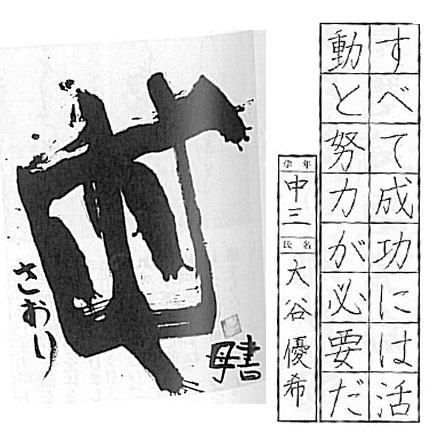 すべて成功には活
動と努力が必要だ
学年 中三
氏名 大谷優希
さおり